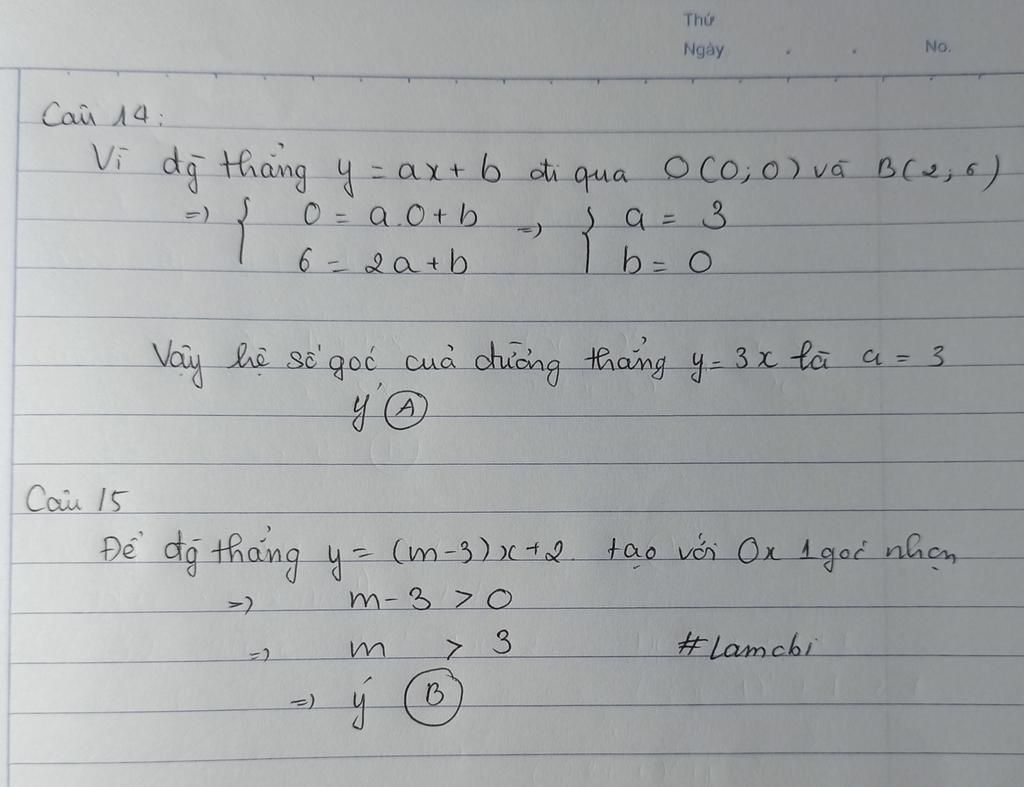 Thứ
Ngày . . No.
Câu 14:
Vì đg thẳng y = ax + b đi qua O(0;0) và B(2;6)
=> { 0 = a.0 + b => { a = 3
6 = 2a + b b = 0
Vậy hệ số góc của đường thẳng y = 3x là a = 3
ý A
Câu 15
Để đg thẳng y = (m-3)x+2 tạo với Ox 1 góc nhọn
=> m - 3 > 0
=> m > 3 #lamcbi
=> ý B